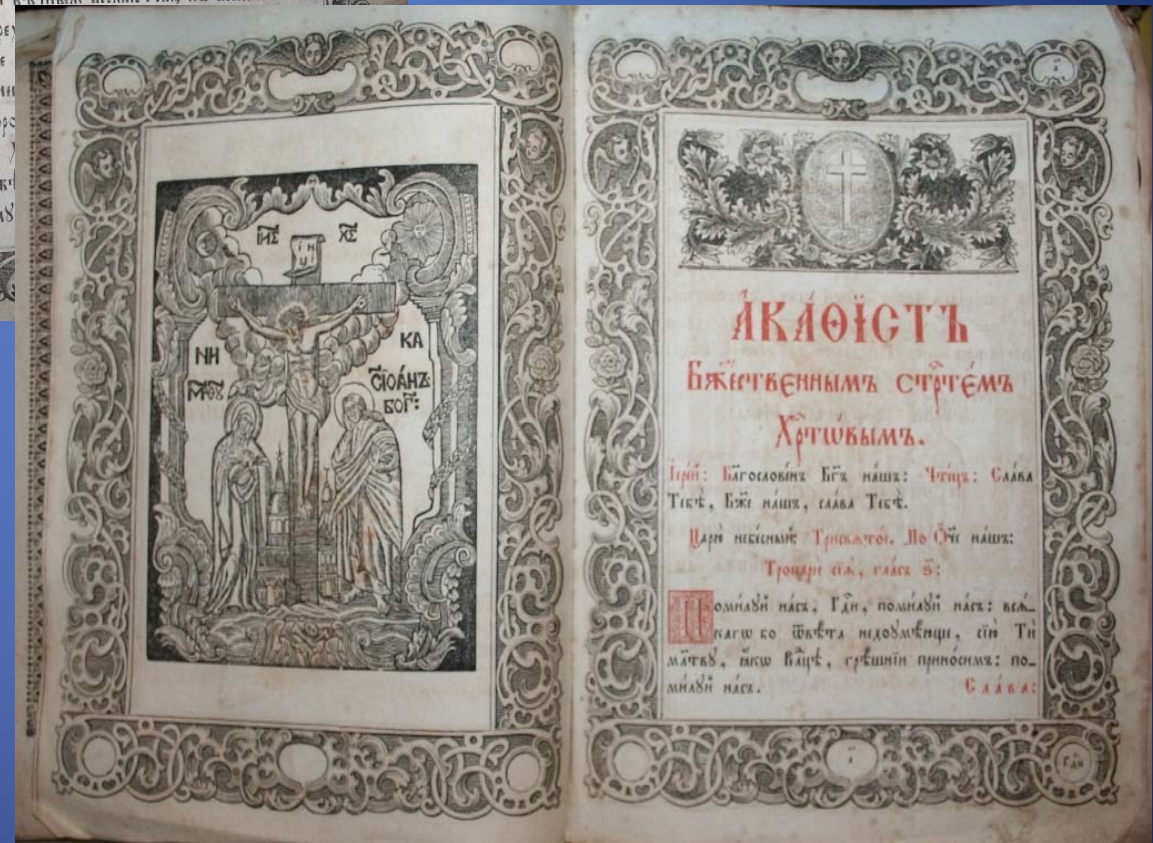 І҃ИС Х҃С
І Н
Ц І
НИ КА
М҃РѲꙊ С҃ІОА́НЪ
БОГ:
А҆КА́ѲІСТЪ
Бж҃ественнымъ стрⷭ҇те́мъ
Хрⷭ҇тѡвымъ.
Іере́й: Бл҃гослове́нъ Бг҃ъ на́шъ: Чте́цъ: Сла́ва
Тебѣ̀, Бж҃е на́шъ, сла́ва Тебѣ̀.
Царю̀ небе́сный: Трисвѧто́е. По Ѻ҆́ч҃е на́шъ:
Тропарѝ сїѧ̑, гла́съ ѕ҃:
Поми́лꙋй на́съ, Гд҇и, поми́лꙋй на́съ: всѧ́_
кагѡ бо ѿвѣ́та недоꙋмѣ́юще, сїю̀ Тѝ
мл҃твꙋ, ꙗ҆́кѡ Влⷣцѣ, грѣ́шнїи прино́симъ: по_
ми́лꙋй на́съ. Сла́ва:
Гдⷭ҇и